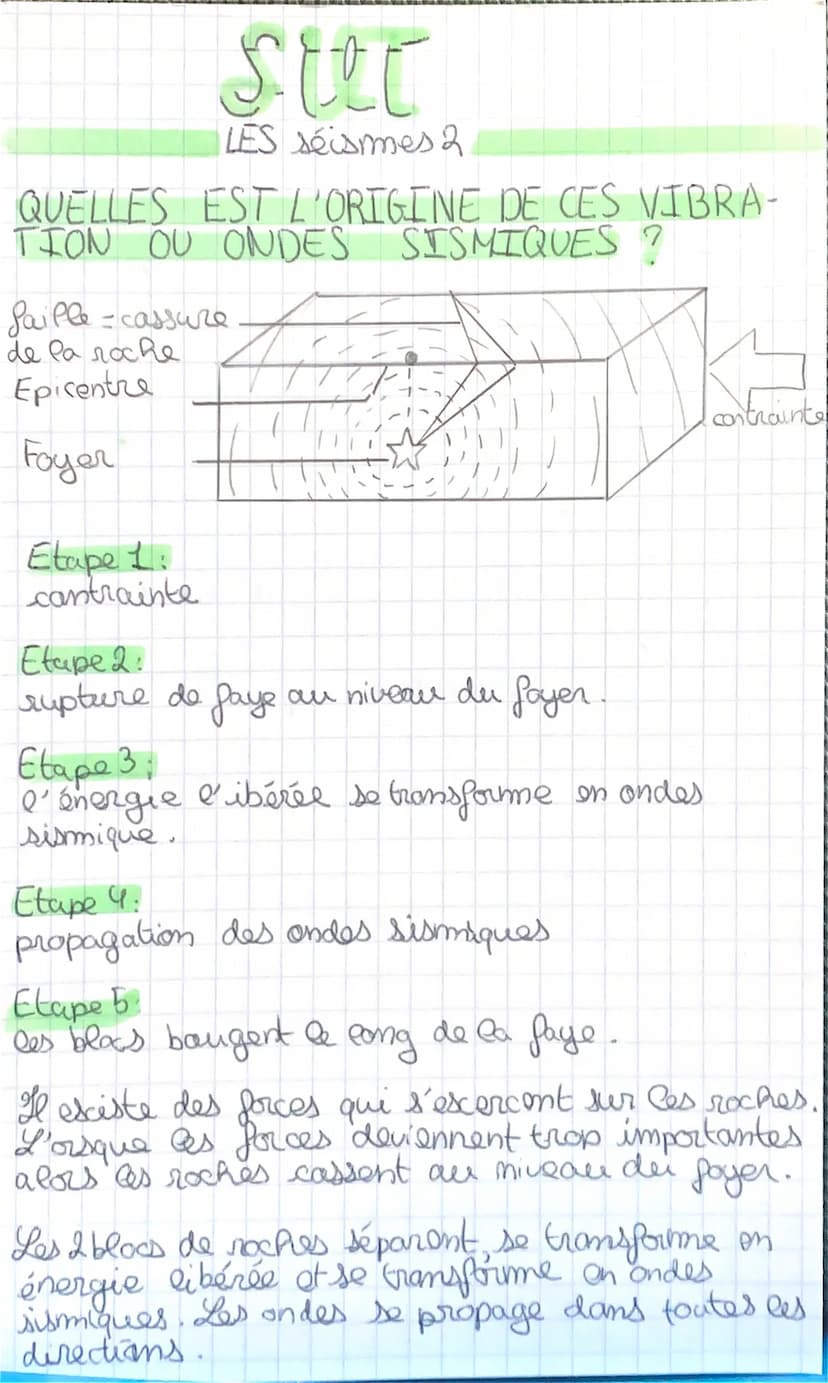 SVT
LES séismes 2
QUELLES EST L'ORIGINE DE CES VIBRA-
TION OU ONDES SISMIQUES ?
faille = cassure
de la roche
Epicentre
Foyer
contrainte
Etape 1:
contrainte
Etape 2:
rupture de faye au niveau du foyer.
Etape 3:
l'énergie l'ibérée se transforme en ondes
sismique.
Etape 4:
propagation des ondes sismiques
Etape 5:
les blocs bougent le long de la faye.
Il existe des forces qui s'escercent sur les roches.
L'orsque les forces deviennent trop importantes
alors les roches cassent au niveau du foyer.
Les 2 blocs de roches séparent, se transforme en
énergie libérée et se transforme en ondes
sismiques. Les ondes se propage dans toutes les
directions.